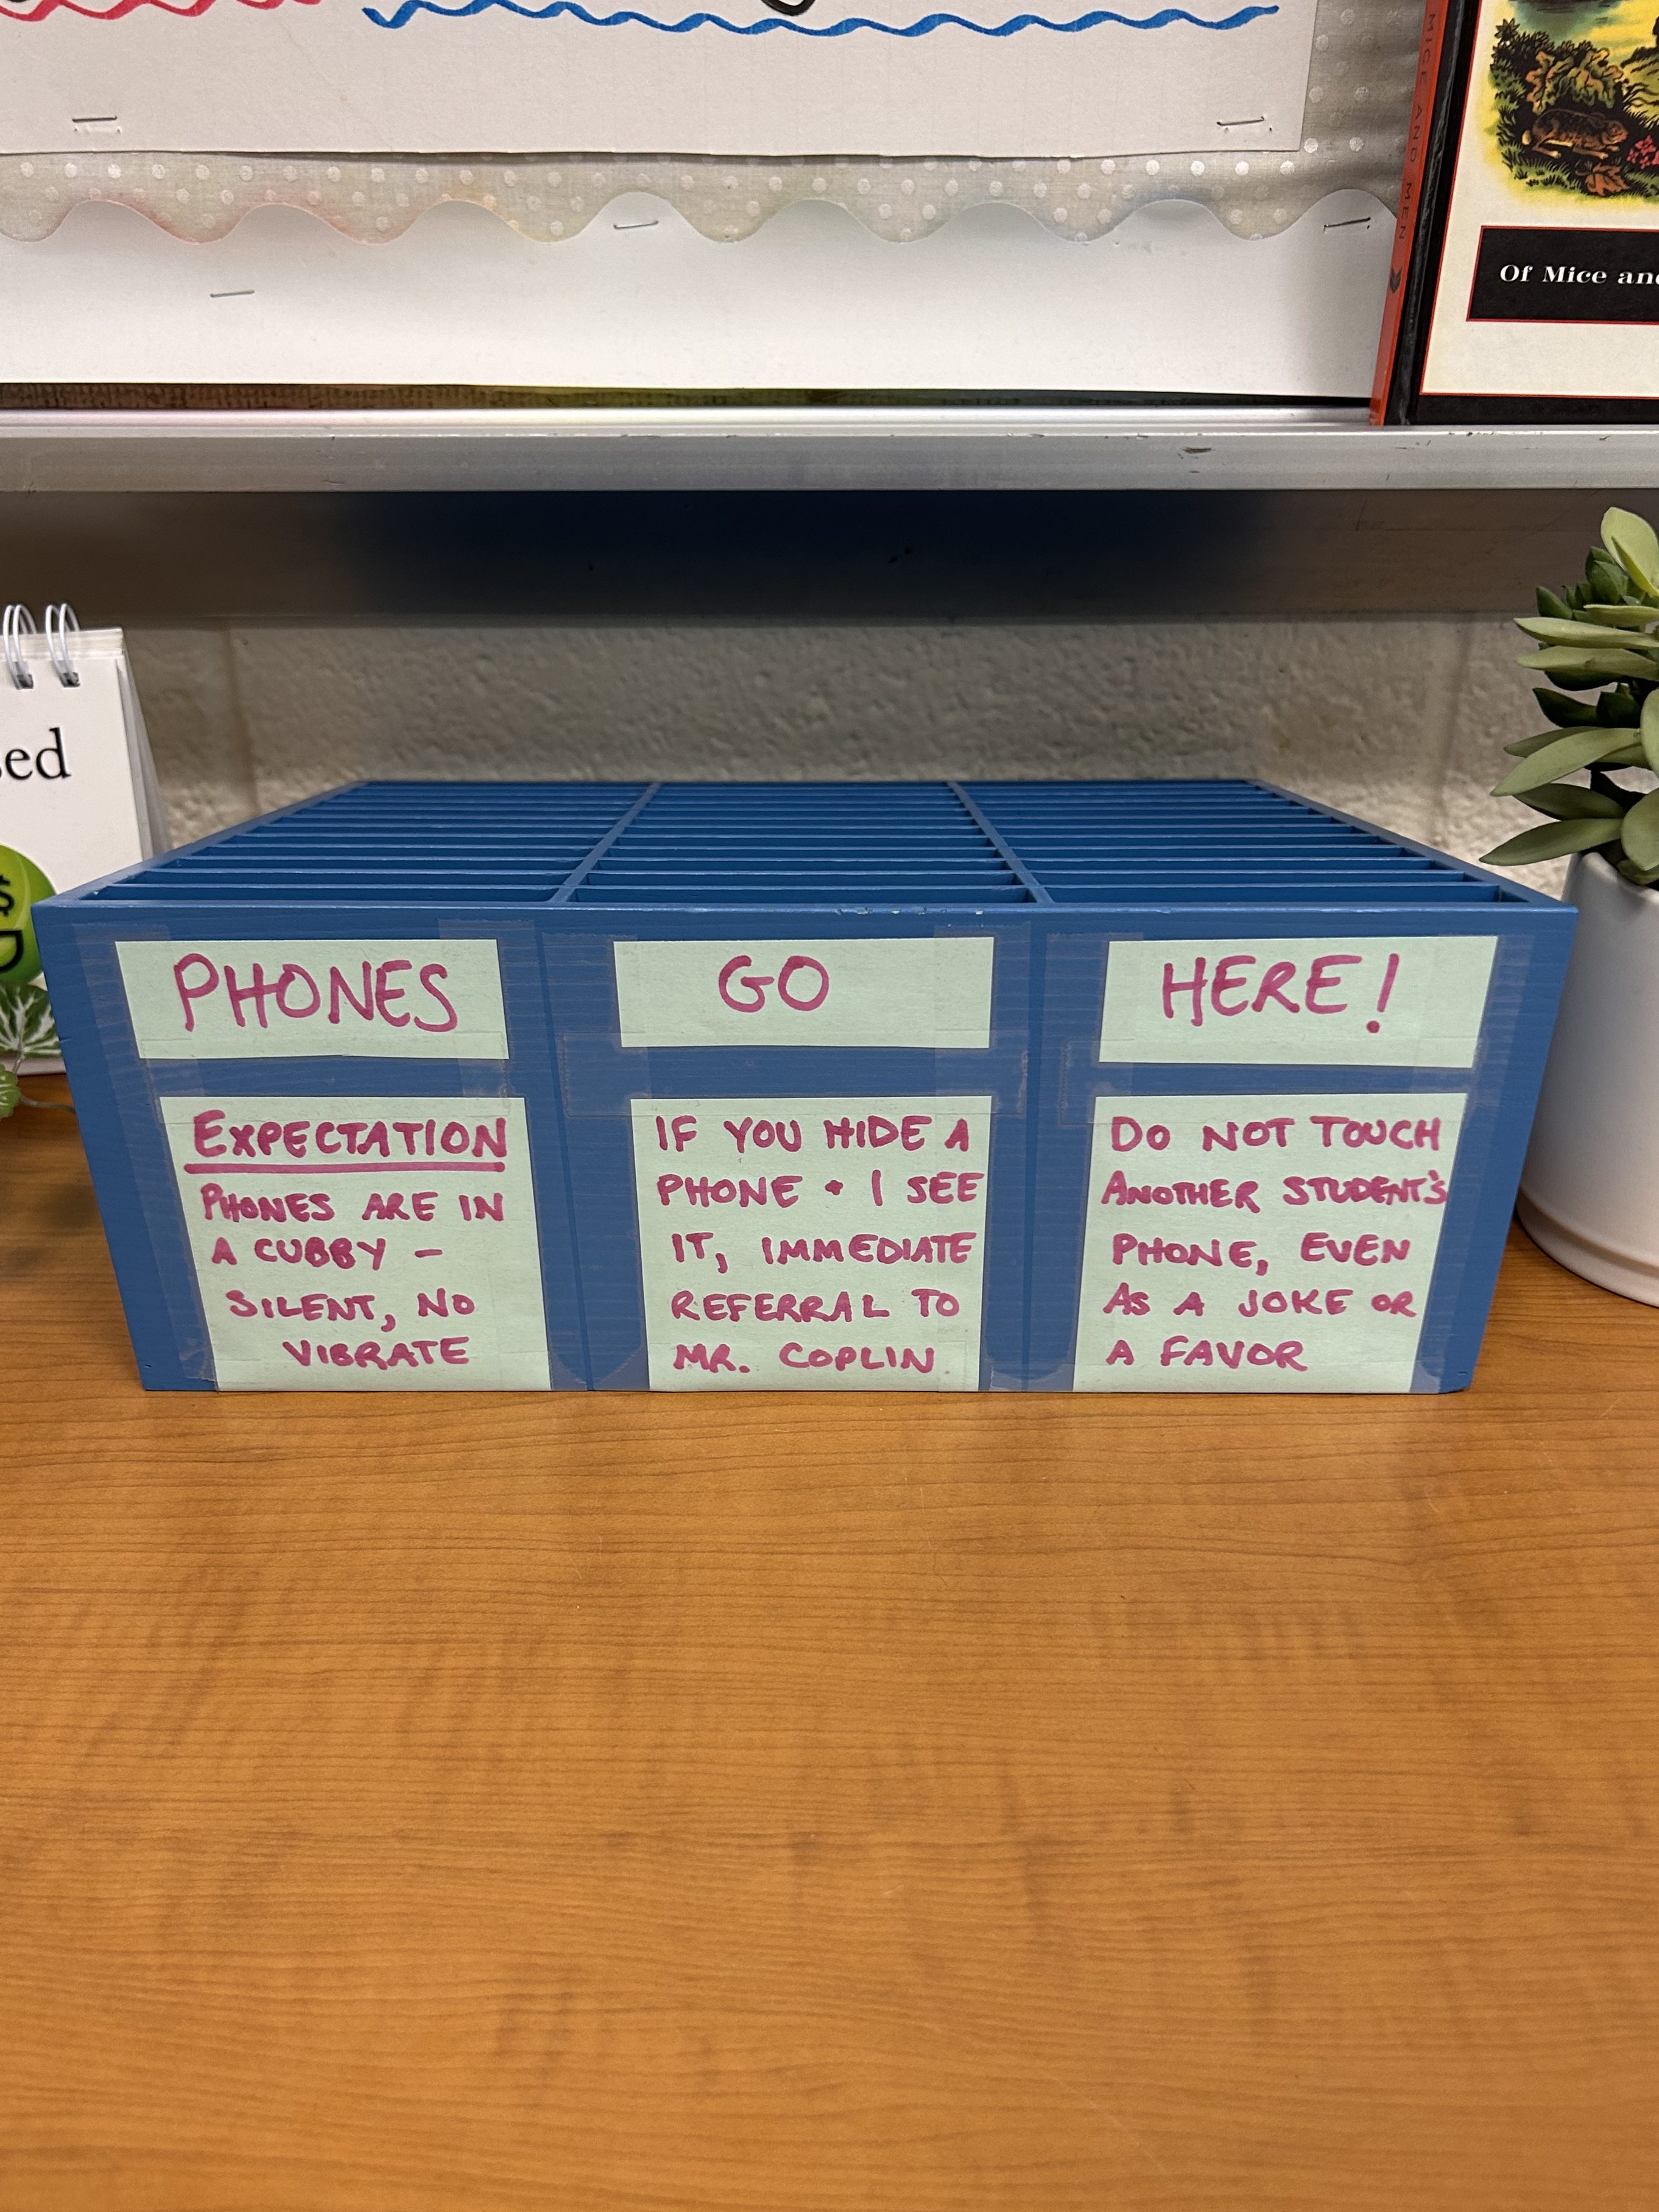 MICE AND MEN
Of Mice and
PHONES
GO
HERE!
EXPECTATION
PHONES ARE IN
A CUBBY -
SILENT, NO
VIBRATE
IF YOU HIDE A
PHONE + I SEE
IT, IMMEDIATE
REFERRAL TO
MR. COPLIN
DO NOT TOUCH
ANOTHER STUDENT'S
PHONE, EVEN
AS A JOKE OR
A FAVOR